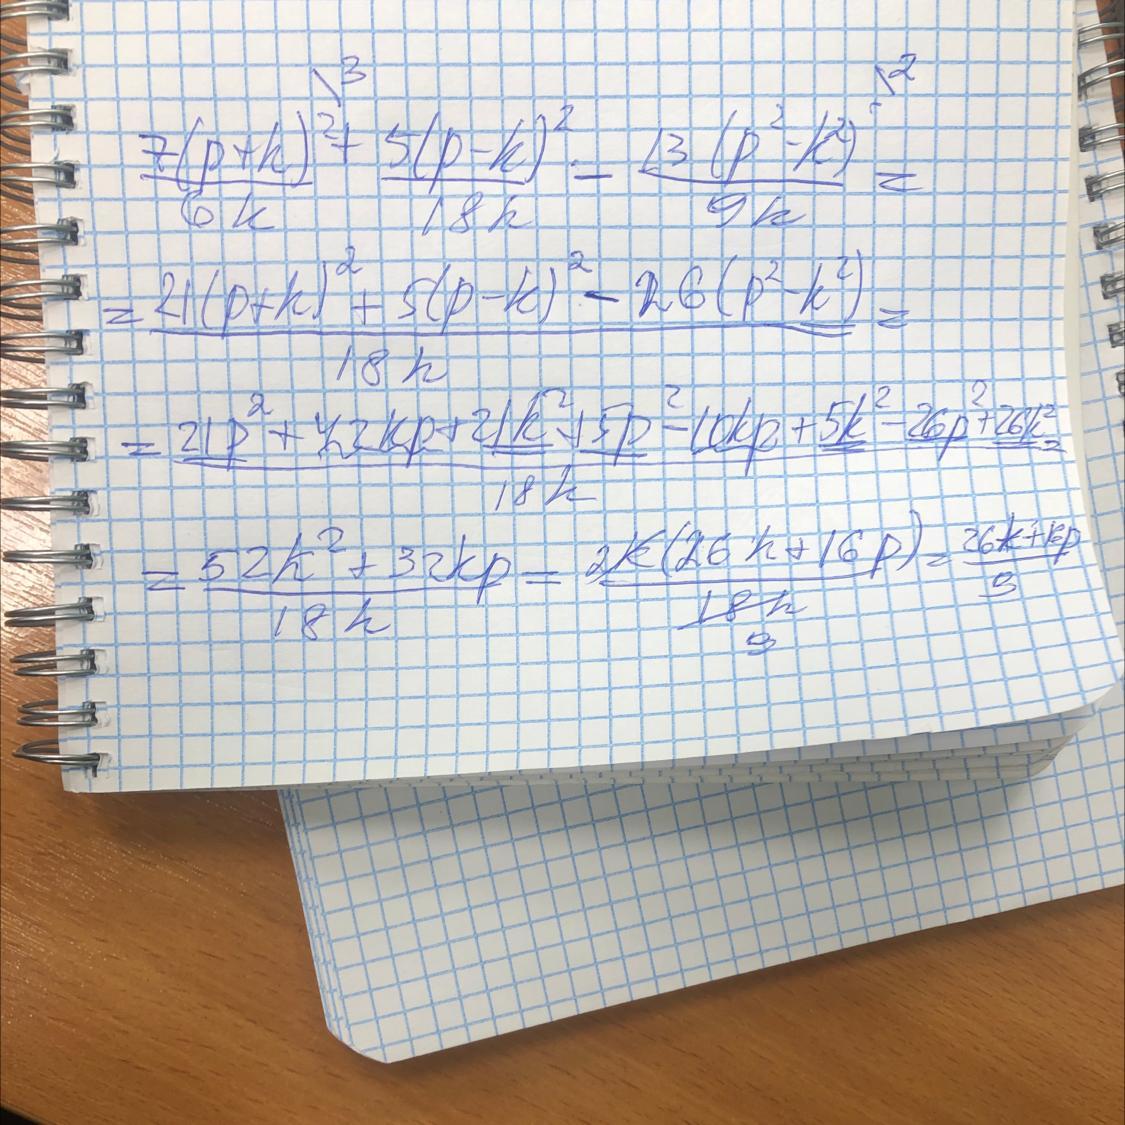 \3 \2
7(p+k)²/6k + 5(p-k)²/18k - 13(p²-k²)/9k =
= (21(p+k)² + 5(p-k)² - 26(p²-k²))/18k =
= (21p² + 42kp + 21k² + 5p² - 10kp + 5k² - 26p² + 26k²)/18k =
= (52k² + 32kp)/18k = 2k(26k + 16p)/18k 9 = /9